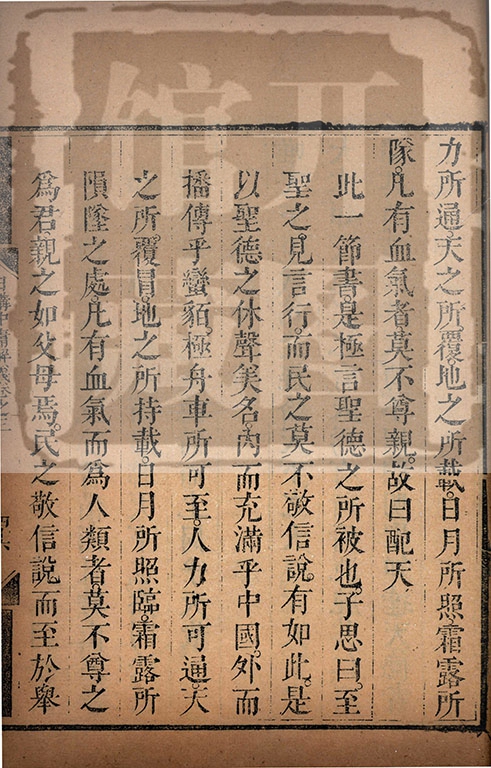 力所通天之所覆地之所載日月所照霜露所
隊凡有血氣者莫不尊親故曰配天
此一節書是極言聖德之所被也子思曰至
聖之見言行而民之莫不敬信說有如此是
以聖德之休聲美名內而充滿乎中國外而
播傳乎蠻貊極舟車所可至人力所可通天
之所覆冒地之所持載日月所照臨霜露所
隕墜之處凡有血氣而為人類者莫不尊之
為君親之如父母焉民之敬信說而至於舉